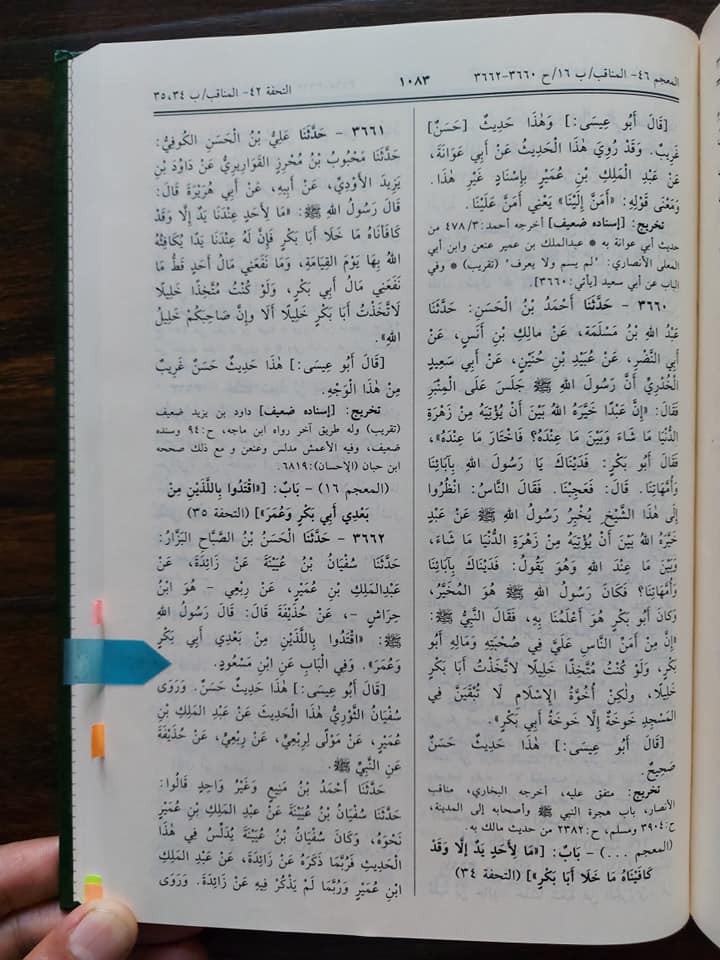 المعجم ٤٦- المناقب/ ب ١٦/ح ٣٦٦٠-٣٦٦٢
١٠٨٣
التحفة ٤٢- المناقب/ ب ٣٤، ٣٥
[قَالَ أَبُو عِيسَى:] وَهَٰذَا حَدِيثٌ [حَسَنٌ]
غَرِيبٌ. وَقَدْ رُوِيَ هَٰذَا الْحَدِيثُ عَنْ أَبِي عَوَانَةَ،
عَنْ عَبْدِ الْمَلِكِ بْنِ عُمَيْرٍ بِإِسْنَادٍ غَيْرِ هَٰذَا.
وَمَعْنَى قَوْلِهِ: «أَمَنَّ إِلَيْنَا» يَعْنِي أَمَنَّ عَلَيْنَا.
تخريج: [إسناده ضعيف] أخرجه أحمد: ٤٧٨/٣ من
حديث أبي عوانة به * عبدالملك بن عمير عنعن وابن أبي
المعلى الأنصاري: "لم يسم ولا يعرف" (تقريب) * وفي
الباب عن أبي سعيد [يأتي: ٣٦٦٠].
٣٦٦٠ - حَدَّثَنَا أَحْمَدُ بْنُ الْحَسَنِ: حَدَّثَنَا
عَبْدُ اللهِ بْنُ مَسْلَمَةَ، عَنْ مَالِكِ بْنِ أَنَسٍ، عَنْ
أَبِي النَّضْرِ، عَنْ عُبَيْدِ بْنِ حُنَيْنٍ، عَنْ أَبِي سَعِيدٍ
الْخُدْرِيِّ أَنَّ رَسُولَ اللهِ ﷺ جَلَسَ عَلَى الْمِنْبَرِ
فَقَالَ: «إِنَّ عَبْدًا خَيَّرَهُ اللهُ بَيْنَ أَنْ يُؤْتِيَهُ مِنْ زَهْرَةِ
الدُّنْيَا مَا شَاءَ وَبَيْنَ مَا عِنْدَهُ؟ فَاخْتَارَ مَا عِنْدَهُ»،
فَقَالَ أَبُو بَكْرٍ: فَدَيْنَاكَ يَا رَسُولَ اللهِ بِآبَائِنَا
وَأُمَّهَاتِنَا. قَالَ: فَعَجِبْنَا. فَقَالَ النَّاسُ: انْظُرُوا
إِلَى هَٰذَا الشَّيْخِ يُخْبِرُ رَسُولُ اللهِ ﷺ عَنْ عَبْدٍ
خَيَّرَهُ اللهُ بَيْنَ أَنْ يُؤْتِيَهُ مِنْ زَهْرَةِ الدُّنْيَا مَا شَاءَ،
وَبَيْنَ مَا عِنْدَ اللهِ وَهُوَ يَقُولُ: فَدَيْنَاكَ بِآبَائِنَا
وَأُمَّهَاتِنَا؟ فَكَانَ رَسُولُ اللهِ ﷺ هُوَ الْمُخَيَّرُ،
وَكَانَ أَبُو بَكْرٍ هُوَ أَعْلَمُنَا بِهِ، فَقَالَ النَّبِيُّ ﷺ:
«إِنَّ مِنْ أَمَنِّ النَّاسِ عَلَيَّ فِي صُحْبَتِهِ وَمَالِهِ أَبُو
بَكْرٍ، وَلَوْ كُنْتُ مُتَّخِذًا خَلِيلًا لَاتَّخَذْتُ أَبَا بَكْرٍ
خَلِيلًا، وَلَٰكِنْ أُخُوَّةُ الْإِسْلَامِ لَا تُبْقَيَنَّ فِي
الْمَسْجِدِ خَوْخَةٌ إِلَّا خَوْخَةُ أَبِي بَكْرٍ».
[قَالَ أَبُو عِيسَى:] هَٰذَا حَدِيثٌ حَسَنٌ
صَحِيحٌ.
تخريج: متفق عليه، أخرجه البخاري، مناقب
الأنصار، باب هجرة النبي ﷺ وأصحابه إلى المدينة،
ح: ٣٩٠٤ ومسلم، ح: ٢٣٨٢ من حديث مالك به.
(المعجم ...) - بَابُ: [«مَا لِأَحَدٍ يَدٌ إِلَّا وَقَدْ
كَافَيْنَاهُ مَا خَلَا أَبَا بَكْرٍ»] (التحفة ٣٤)
٣٦٦١ - حَدَّثَنَا عَلِيُّ بْنُ الْحَسَنِ الْكُوفِيُّ:
حَدَّثَنَا مَحْبُوبُ بْنُ مُحْرِزٍ الْقَوَارِيرِيُّ عَنْ دَاوُدَ بْنِ
يَزِيدَ الْأَوْدِيِّ، عَنْ أَبِيهِ، عَنْ أَبِي هُرَيْرَةَ قَالَ:
قَالَ رَسُولُ اللهِ ﷺ: «مَا لِأَحَدٍ عِنْدَنَا يَدٌ إِلَّا وَقَدْ
كَافَأْنَاهُ مَا خَلَا أَبَا بَكْرٍ فَإِنَّ لَهُ عِنْدَنَا يَدًا يُكَافِئُهُ
اللهُ بِهَا يَوْمَ الْقِيَامَةِ، وَمَا نَفَعَنِي مَالُ أَحَدٍ قَطُّ مَا
نَفَعَنِي مَالُ أَبِي بَكْرٍ، وَلَوْ كُنْتُ مُتَّخِذًا خَلِيلًا
لَاتَّخَذْتُ أَبَا بَكْرٍ خَلِيلًا أَلَا وَإِنَّ صَاحِبَكُمْ خَلِيلُ
اللهِ».
[قَالَ أَبُو عِيسَى:] هَٰذَا حَدِيثٌ حَسَنٌ غَرِيبٌ
مِنْ هَٰذَا الْوَجْهِ.
تخريج: [إسناده ضعيف] داود بن يزيد ضعيف
(تقريب) وله طريق آخر رواه ابن ماجه، ح: ٩٤ وسنده
ضعيف، وفيه الأعمش مدلس وعنعن و مع ذلك صححه
ابن حبان (الإحسان): ٦٨١٩.
(المعجم ١٦) - بَابُ: [«اقْتَدُوا بِاللَّذَيْنِ مِنْ
بَعْدِي أَبِي بَكْرٍ وَعُمَرَ»] (التحفة ٣٥)
٣٦٦٢ - حَدَّثَنَا الْحَسَنُ بْنُ الصَّبَّاحِ الْبَزَّارُ:
حَدَّثَنَا سُفْيَانُ بْنُ عُيَيْنَةَ عَنْ زَائِدَةَ، عَنْ
عَبْدِالْمَلِكِ بْنِ عُمَيْرٍ، عَنْ رِبْعِيٍّ - هُوَ ابْنُ
حِرَاشٍ -، عَنْ حُذَيْفَةَ قَالَ: قَالَ رَسُولُ اللهِ
ﷺ: «اقْتَدُوا بِاللَّذَيْنِ مِنْ بَعْدِي أَبِي بَكْرٍ
وَعُمَرَ». وَفِي الْبَابِ عَنِ ابْنِ مَسْعُودٍ.
[قَالَ أَبُو عِيسَى:] هَٰذَا حَدِيثٌ حَسَنٌ. وَرَوَى
سُفْيَانُ الثَّوْرِيُّ هَٰذَا الْحَدِيثَ عَنْ عَبْدِ الْمَلِكِ بْنِ
عُمَيْرٍ، عَنْ مَوْلًى لِرِبْعِيٍّ، عَنْ رِبْعِيٍّ، عَنْ حُذَيْفَةَ
عَنِ النَّبِيِّ ﷺ.
حَدَّثَنَا أَحْمَدُ بْنُ مَنِيعٍ وَغَيْرُ وَاحِدٍ قَالُوا:
حَدَّثَنَا سُفْيَانُ بْنُ عُيَيْنَةَ عَنْ عَبْدِ الْمَلِكِ بْنِ عُمَيْرٍ
نَحْوَهُ، وَكَانَ سُفْيَانُ بْنُ عُيَيْنَةَ يُدَلِّسُ فِي هَٰذَا
الْحَدِيثِ فَرُبَّمَا ذَكَرَهُ عَنْ زَائِدَةَ، عَنْ عَبْدِ الْمَلِكِ
ابْنِ عُمَيْرٍ وَرُبَّمَا لَمْ يَذْكُرْ فِيهِ عَنْ زَائِدَةَ. وَرَوَى